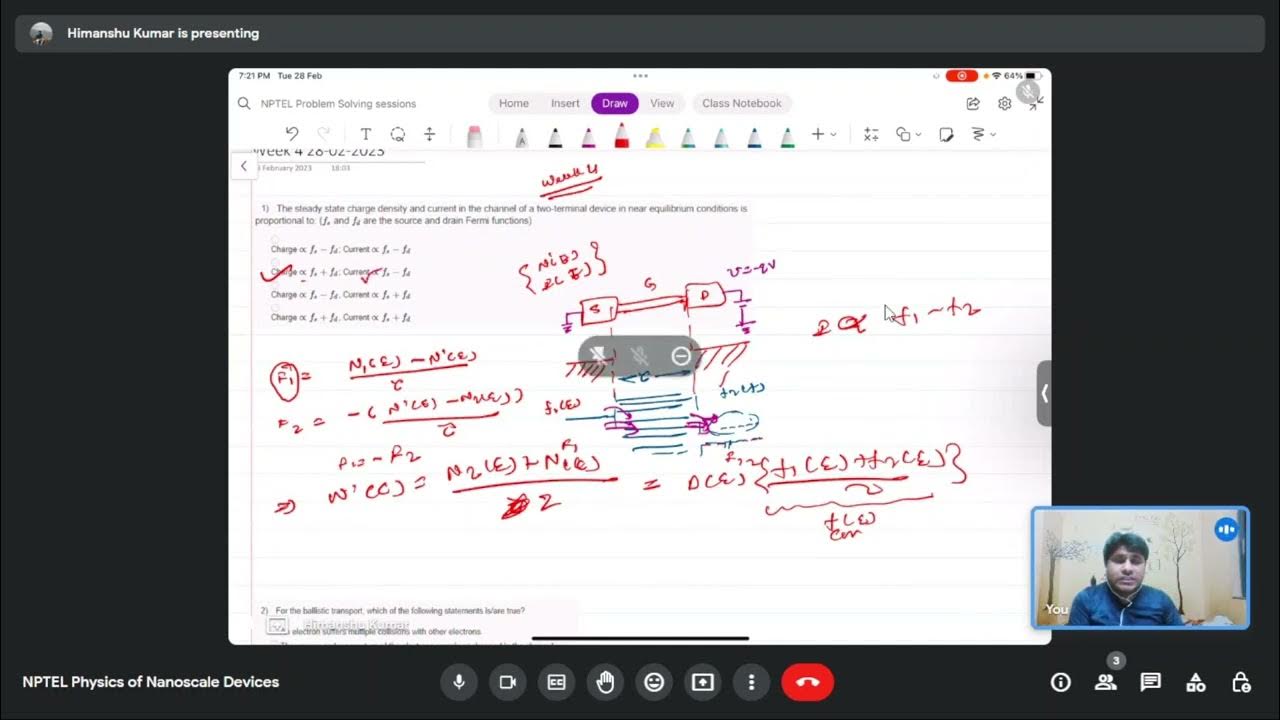 Himanshu Kumar is presenting
7:21 PM Tue 28 Feb
64%
NPTEL Problem Solving sessions
Home Insert Draw View Class Notebook
Week 4 28-02-2023
February 2023 18:03
Week 4
1) The steady state charge density and current in the channel of a two-terminal device in near equilibrium conditions is
proportional to: (fs and fd are the source and drain Fermi functions)
Charge ∝ fs − fd; Current ∝ fs − fd
Charge ∝ fs + fd; Current ∝ fs − fd
Charge ∝ fs − fd; Current ∝ fs + fd
Charge ∝ fs + fd; Current ∝ fs + fd
N'(E)
S G D
U=-qV
I ∝ f1 - f2
F1 = N1(E) - N'(E)
τ
F2 = -(N'(E) - N2(E))
τ
f1(E)
F1 = -F2
⇒ N'(E) = N2(E) + N1(E) = D(E) {f1(E) + f2(E)}
2 2
f(E)
2) For the ballistic transport, which of the following statements is/are true?
Himanshu Kumar
electron suffers multiple collisions with other electrons.
You
NPTEL Physics of Nanoscale Devices
3